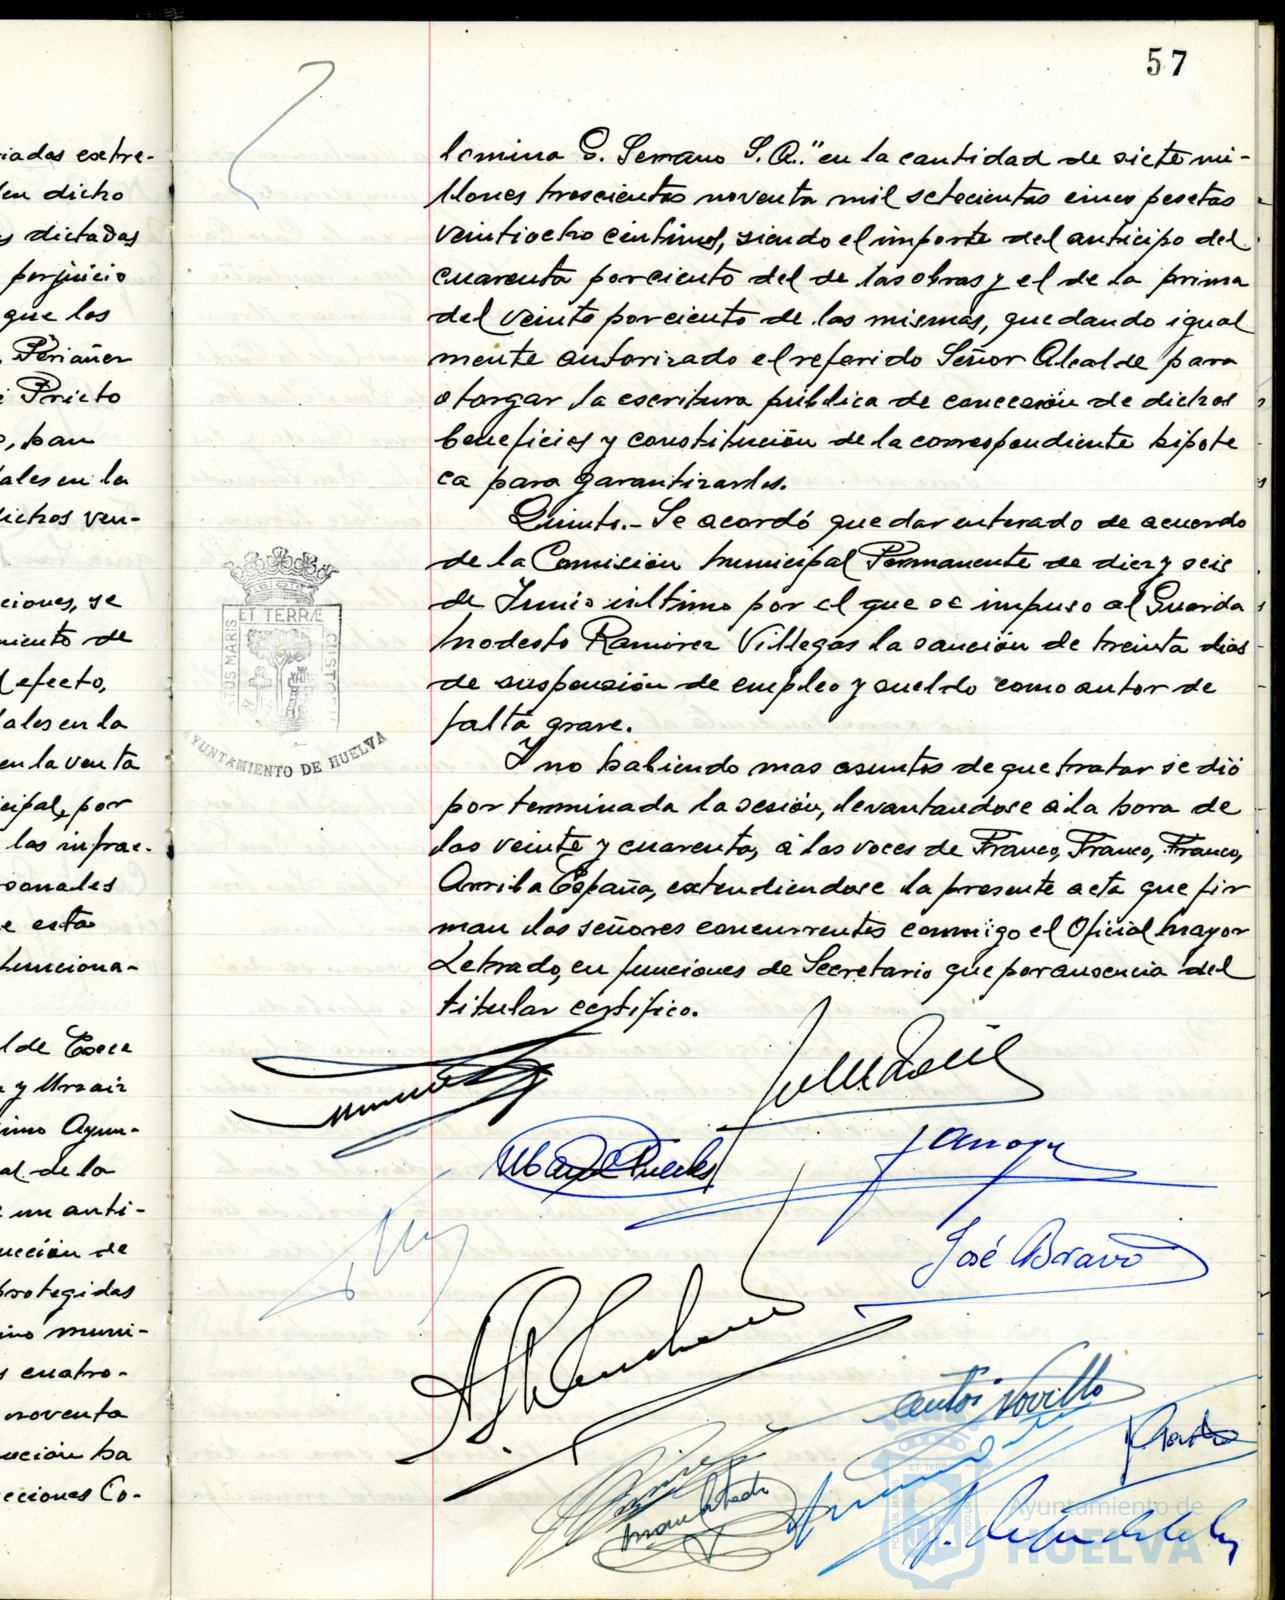 57
iadas extre-
en dicho
s dictadas
perjuicio
que los
Periañez
i Prieto
o, han
ales en la
dichos ven-
ciones, se
miento de
l efecto,
ales en la
en la venta
cipal, por
las infrac-
sonales
e esta
funciona-
l de Coca
a y Urzaiz
simo Ayun-
al de la
e un anti-
ucción de
protegidas
ino muni-
s cuatro-
noventa
ución ha
ecciones Co-
lomina G. Serrano S.A." en la cantidad de siete mi-
llones trescientas noventa mil setecientas cinco pesetas
veintiocho centimos, siendo el importe del anticipo del
cuarenta por ciento del de las obras y el de la prima
del veinte por ciento de las mismas, quedando igual
mente autorizado el referido Señor Alcalde para
otorgar la escritura pública de concesión de dichos
beneficios y constitución de la correspondiente hipote
ca para garantizarlos.
Quinto.- Se acordó quedar enterado de acuerdo
de la Comisión Municipal Permanente de diez y seis
de Junio último por el que se impuso al Guarda
Modesto Ramirez Villegas la sanción de treinta dias
de suspensión de empleo y sueldo como autor de
falta grave.
Y no habiendo mas asuntos de que tratar se dió
por terminada la sesión, levantandose a la hora de
las veinte y cuarenta, a las voces de Franco, Franco, Franco,
Arriba España, extendiendose la presente acta que fir
man los señores concurrentes conmigo el Oficial Mayor
Letrado, en funciones de Secretario que por ausencia del
titular certifico.
ET TERRÆ
AYUNTAMIENTO DE HUELVA
José Bravo
Novillo
Ayuntamiento de
HUELVA